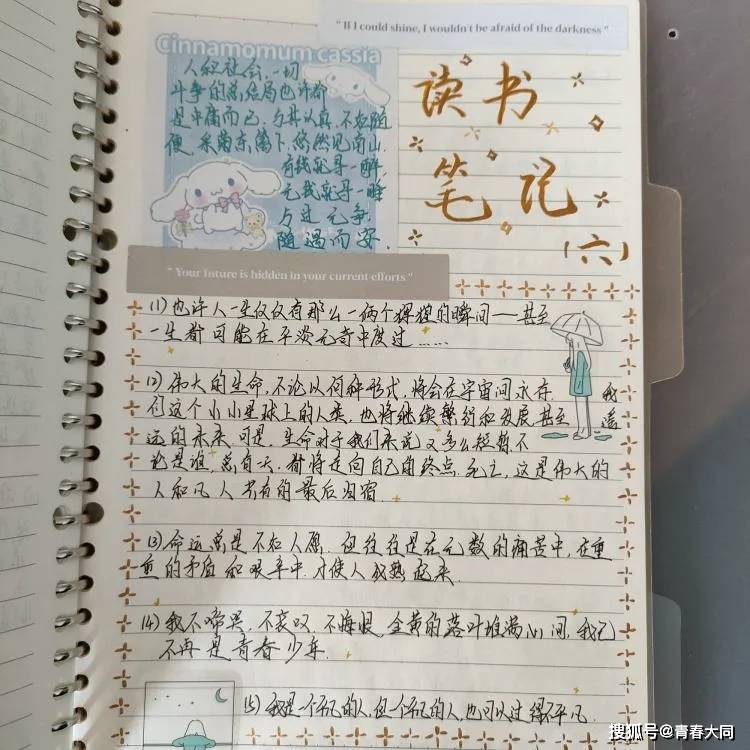 “If I could shine, I wouldn't be afraid of the darkness”
Cinnamomum cassia
人和社会、一切
斗争的总结局也许都
是中庸而已。与其认真、不如随
便、采菊东篱下、悠然见南山
有钱就寻一醉、
无钱就寻一睡
与世无争、
随遇而安.
读书
笔记
(六)
“Your future is hidden in your current efforts”
(1)也许人一生仅仅有那么一两个辉煌的瞬间——甚至
一生都可能在平淡无奇中度过......
(2)伟大的生命,不论以何种形式,将会在宇宙间永存. 我
们这个小小星球上的人类,也将继续繁衍和发展,甚至 遥
远的未来.可是,生命对于我们来说又多么短暂.不
论是谁,总有一天,都将走向自己的终点.死亡,这是伟大的
人和凡人共有的最后归宿.
(3)命运总是不如人愿.但往往是在无数的痛苦中,在重
重的矛盾和艰辛中.才使人成熟起来.
(4)我不啼哭,不哀叹.不悔恨,金黄的落叶堆满心间,我已
不再是青春少年.
(5)我是个平凡的人,但个平凡的人,也可以过得不平凡.
搜狐号@青春大同